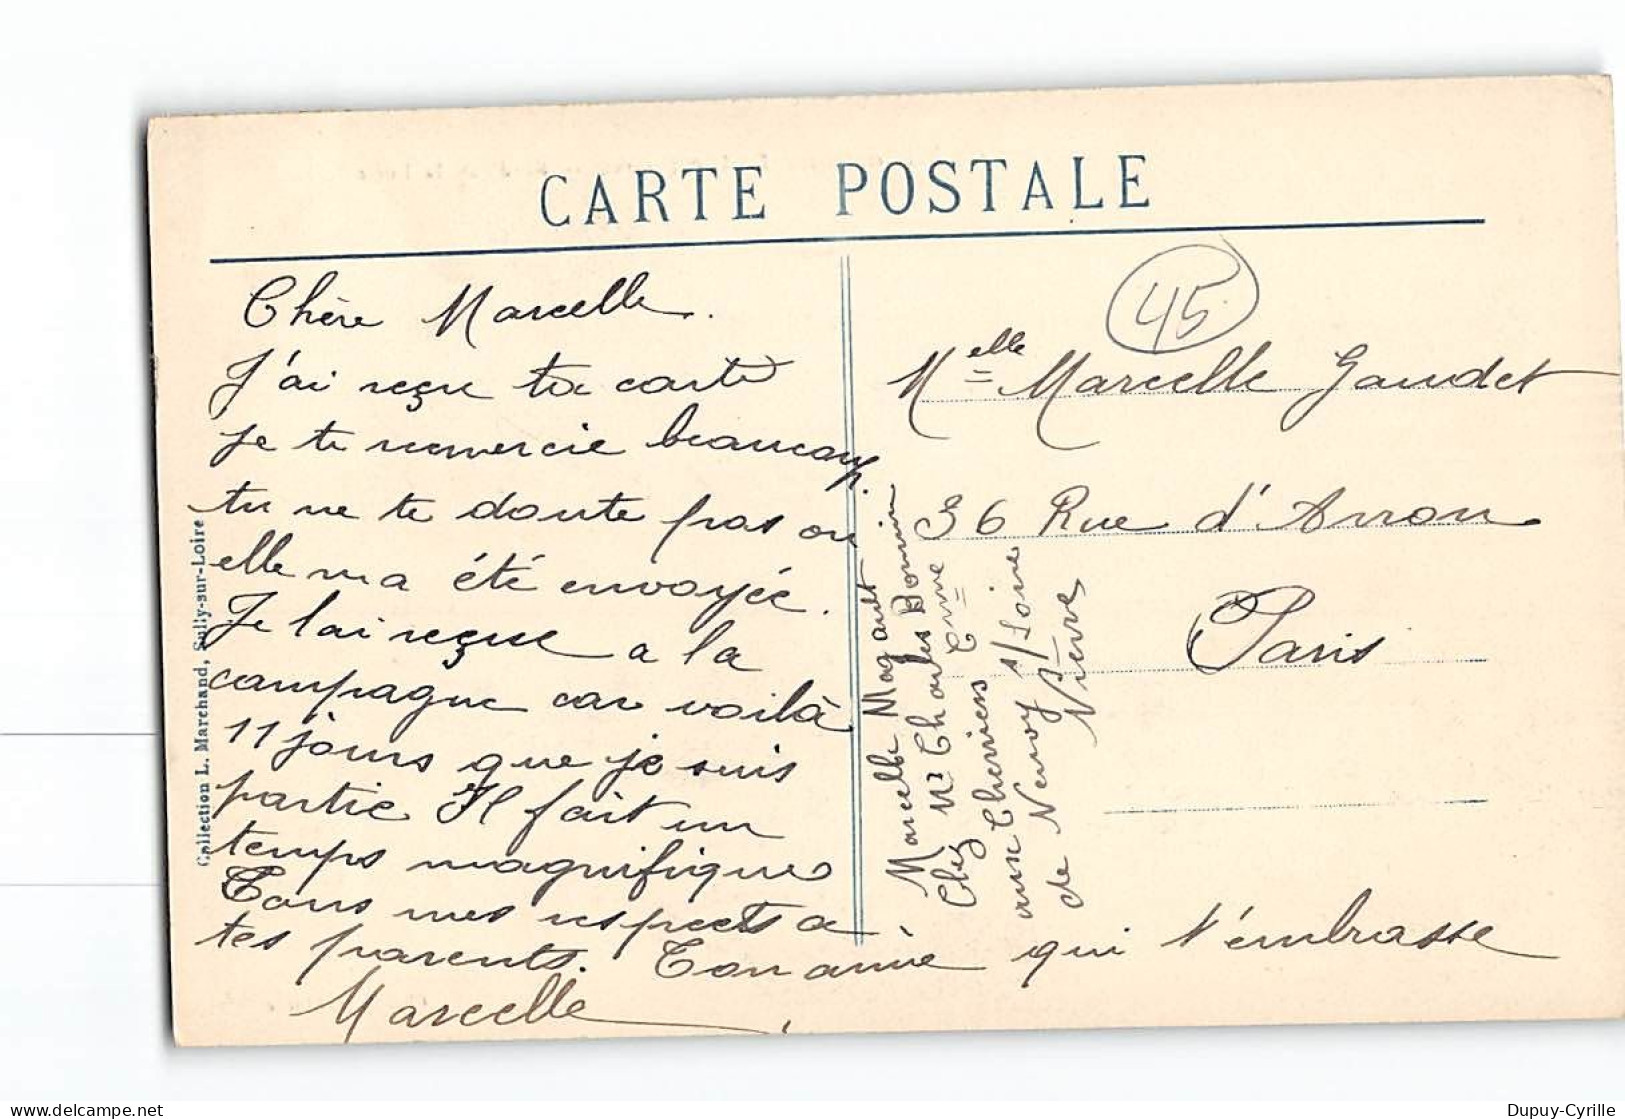 CARTE POSTALE
Chère Marcelle.
J'ai reçu ta carte
je te remercie beaucoup.
tu ne te doute pas ou
elle m'a été envoyée.
Je l'ai reçue a la
campagne car voilà
11 jours que je suis
partie Il fait un
temps magnifique
Tous mes respects a
tes parents. Ton amie qui t'embrasse
Marcelle
45
Melle Marcelle Gaudet
36 Rue d'Avron
Paris
Marcelle Magault
Chez Mr Charles Bonnin
aux Cherriens
de Neuvy s/Loire
Nièvre
Collection L. Marchand, Sully-sur-Loire
delcampe.net
Dupuy-Cyrille